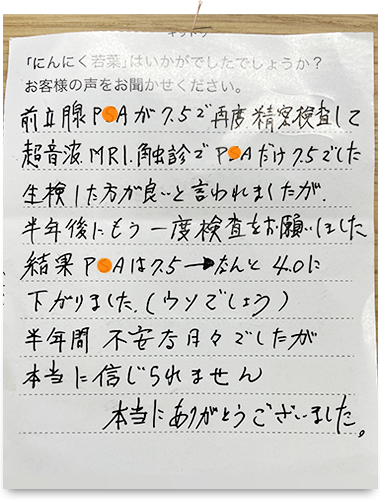 「にんにく若菜」はいかがでしたでしょうか?
お客様の声をお聞かせください。
前立腺P Aが7.5で再度精密検査して
超音波、MRI、触診でP Aだけ7.5でした
生検した方が良いと言われましたが、
半年後にもう一度検査をお願いしました
結果P Aは7.5→なんと4.0に
下がりました。(ウソでしょう)
半年間 不安な月々でしたが
本当に信じられません
本当にありがとうございました。